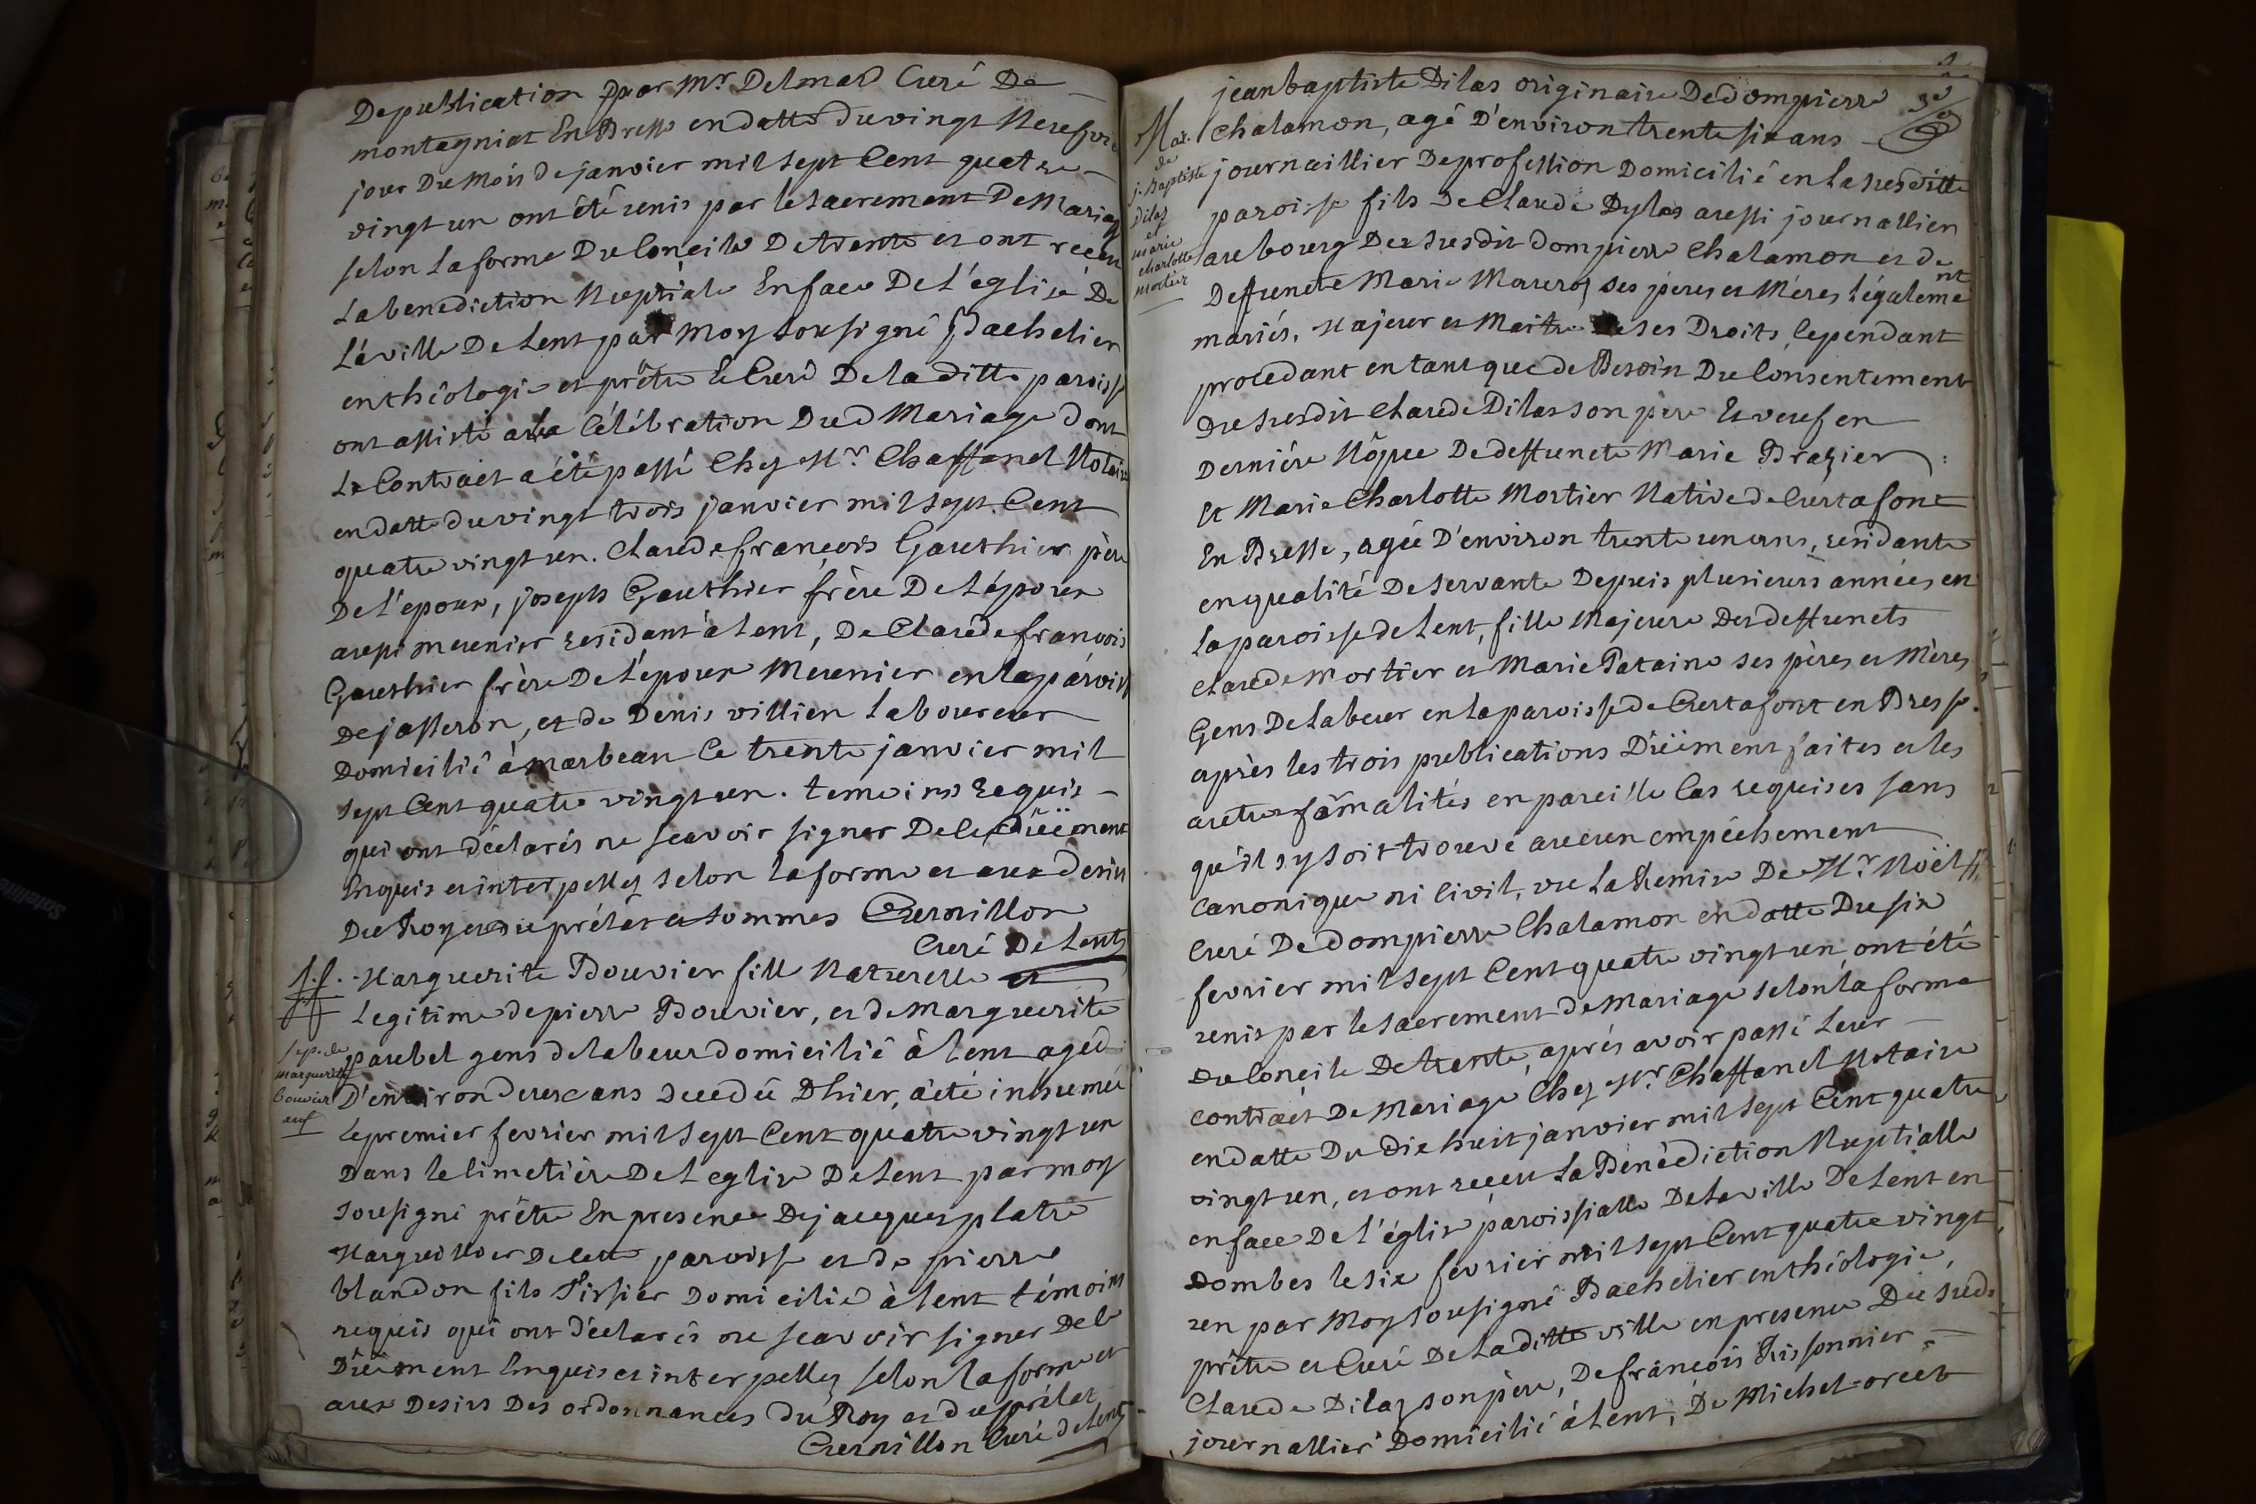 De publication par Mr. Delmas Curé De
montagniat En Bresse en datte du vingt Neufvie
jour Du Mois de janvier mil sept Cent quatre
vingt un ont été unis par le sacrement De Mariage
selon la forme Du Concile De trente et ont receu
La benediction Nuptiale En face De L'église De
La ville De Lent par Moy sousigné Bachelier
en théologie et prêtre et Curé De la ditte paroisse
ont assisté a la Célébration Dud Mariage dont
Le Contract a été passé Chez Mr. Chaffanel Notaire
en datte du vingt trois janvier mil sept Cent
quatre vingt un. Claude françois Gauthier père
De L'epoux, joseph Gauthier frère De L'époux
aussi meunier residant à Lent, De Claude françois
Gauthier frère De L'époux Meunier en la paroisse
De jasseron, et de Denis villien Laboureur
Domicilié à marbeau Ce trente janvier mil
sept Cent quatre vingt un. temoins Requis
qui ont déclarés ne scavoir signer De le Düëment
Enquis et interpellez selon la forme et aux desirs
Du Roy et du prélat et sommes Cursillon
Curé De Lent
f.f. Marguerite Bouvier fille Naturelle et
Legitime de pierre Bouvier, et de Marguerite
paubel gens de labeur domicilié à Lent agéé
D'environ deux ans decedée D'hier, a été inhumée
Le premier fevrier mil sept Cent quatre vingt un
Dans le Cimetière De L'eglise De Lent par moy
sousigné prêtre En presence De jacques platre
Marguillier De cette paroisse et de pierre
blandon fils Tissier Domicilié à Lent témoins
requis qui ont déclarés ne scavoir signer De le
Düëment Enquis et interpellez selon la forme et
aux Desirs Des ordonnances du Roy et du prélat
Cursillon Curé de Lent
Sep. de
marguerite
bouvier
jean baptiste Dilas originaire De dompierre
Chalamon, agé D'environ trente six ans
journaillier De profession Domicilié en La susditte
paroisse fils De Claude Dylas aussi journallier
au bourg Du susdit dompierre Chalamon et de
Deffuncte Marie Mourroz ses pères et Mères Légalement
mariés, Majeur et Maitre De ses Droits, Cependant
procedant en tant que de Besoin Du Consentement
Du susdit Claude Dilas son père Et veuf en
Dernière Nôpce De deffuncte Marie Brazier
Et Marie Charlotte Mortier Native de Curtafont
En Bresse, agée D'environ trente un ans, residante
en qualité De servante Depuis plusieurs années en
La paroisse de Lent, fille Majeure Des deffuncts
Claude mortier et Marie Pataino ses pères et Mères
Gens De Labeur en la paroisse de Curtafont en Bresse.
après les trois publications Düëment faites et les
autres formalités en pareille Cas requises sans
qu'il s'y soit trouvé aucun empêchement
Canonique ni Civil, vu La Remise De Mr. Noël
Curé De dompierre Chalamon en datte Du six
fevrier mil sept Cent quatre vingt un, ont été
unis par le sacrement de Mariage selon la forme
du Concile De trente, après avoir passé Leur
Contract De Mariage Chez Mr. Chaffanel Notaire
en datte Du dix huit janvier mil sept Cent quatre
vingt un, et ont receu La Bénédiction Nuptialle
en face De L'église paroissialle De La ville De Lent en
Dombes le six fevrier mil sept Cent quatre vingt
un par Moy sousigné Bachelier en théologie,
prêtre et Curé De La ditte ville en presence Du susd
Claude Dilaz son père, De françois Tissonnier
journallier Domicilié à Lent, De Michel
Mar.
de
j. Baptiste
Dilaz
et
marie
charlotte
mortier